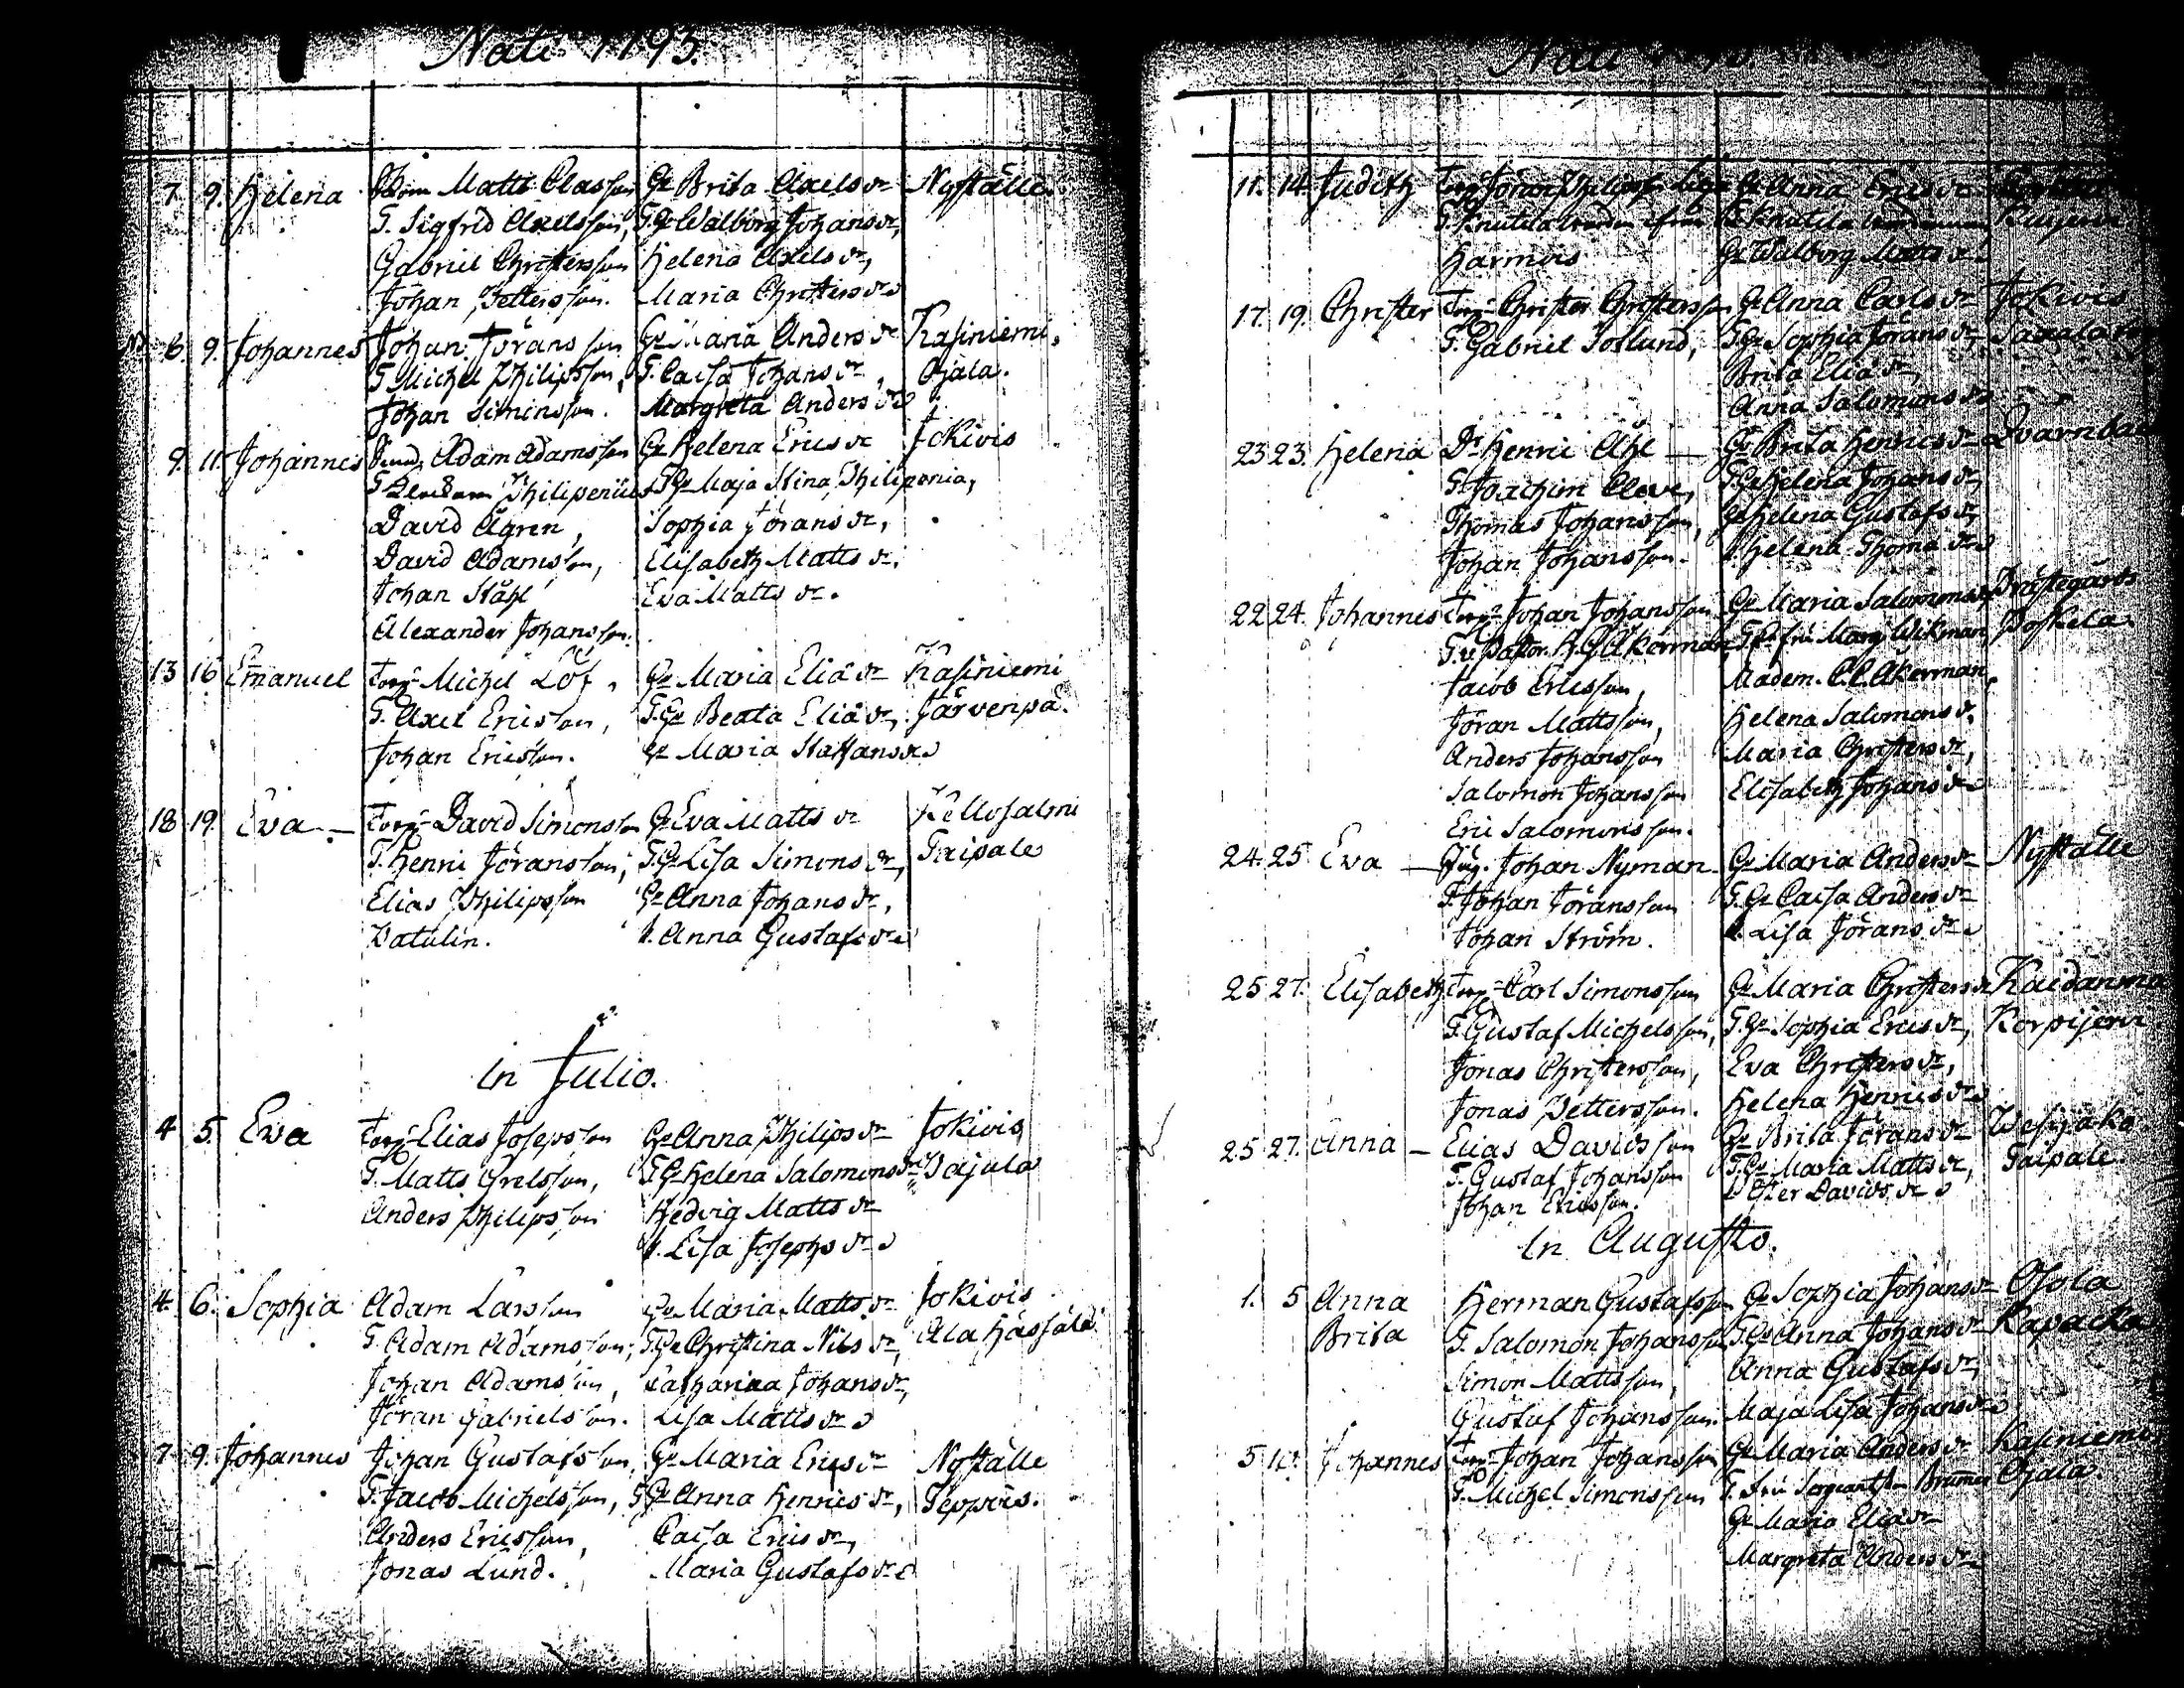 Nati 1795.
7. 9. Helena Matts Classon Hu Brita Axels dr Nyställe
T. Sigfrid Axelsson, T. Hu Walborg Johans dr,
Gabriel Christersson Helena Axels dr,
Johan Pettersson. Maria Christers dr
6. 9. Johannes Johan Jöransson Hu Maria Anders dr Kasiniemi,
T. Michel Philipsson, T. Caisa Johans dr, Ojala.
Johan Simonsson. Margreta Anders dr
9. 11. Johannes Adam Adamsson Hu Helena Erics dr Jokivis
T. Philipenius T. Hu Maja Stina Philipenia,
David Ågren, Sophia Jörans dr,
David Adamsson, Elisabeth Matts dr,
Johan Ståhl Eva Matts dr.
Alexander Johansson.
13 16 Emanuel Torp. Michel Löf, Hu Maria Eliæ dr Kasiniemi
T. Axel Ericsson, T. Hu Beata Eliæ dr, Järvenpä.
Johan Ericsson. Hu Maria Staffans dr
18 19. Eva — Torp. David Simonsson Hu Eva Matts dr Kellosalmi
T. Henric Jöransson, T. Hu Lisa Simons dr, Taipale
Elias Philipsson Hu Anna Johans dr,
Vatulin. p. Anna Gustafs dr
In Julio.
4 5. Eva Torp. Elias Josepsson Hu Anna Philips dr Jokivis
T. Matts Grelsson, T. Hu Helena Salomons dr Pajula
Anders Philipsson Hedvig Matts dr
p. Lisa Josephs dr
4. 6. Sophia Adam Larsson Hu Maria Matts dr Jokivis
T. Adam Adamsson, T. Hu Christina Nils dr, Ala Hassala
Johan Adamsson, Catharina Johans dr,
Jöran Gabrielsson. Lisa Matts dr
7. 9. Johannes Johan Gustafsson Hu Maria Erics dr Nyställe
T. Jacob Michelsson, T. Hu Anna Henrics dr, Seppois.
Anders Ericsson, Caisa Erics dr,
Jonas Lund. Maria Gustafs dr
Nati
11. 14. Judith Torp. Jöran Philipsson Hu Anna Erics dr
T. Knutila
Harmois Hu Walborg Matts dr
17. 19. Christer Torp. Christer Christersson Hu Anna Carls dr Jokivis
T. Gabriel Forlund, T. Hu Sophia Jörans dr,
Brita Eliæ dr,
Anna Salomons dr
23 23. Helena Dr Henric Ahl — Hu Brita Henrics dr
T. Joachim Cleve, T. Hu Helena Johans dr,
Thomas Johansson, Hu Helena Gustafs dr,
Johan Johansson. p. Helena Thomæ dr
22 24. Johannes Torp. Johan Johansson Hu Maria Salomons dr Prästegårds
T. v. Pastor Åkerman, T. Fru Marg. Wikman, Poskela
Jacob Ericsson, Madem. C. C. Åkerman,
Jöran Mattsson, Helena Salomons dr,
Anders Johansson Maria Christers dr,
Salomon Johansson Elisabeth Johans dr
Eric Salomonsson.
24. 25 Eva — Johan Nyman. Hu Maria Anders dr Nyställe
T. Johan Jöransson T. Hu Caisa Anders dr
Johan Ström. p. Lisa Jörans dr
25 27. Elisabeth Torp. Carl Simonsson Hu Maria Christers dr
T. Gustaf Michelsson, T. Hu Sophia Erics dr, Korpijervi
Jonas Christersson, Eva Christers dr,
Jonas Pettersson. Helena Henrics dr
25 27. Anna — Elias Davidsson Hu Brita Jörans dr Wesijako
T. Gustaf Johansson T. Hu Maria Matts dr, Taipale
Johan Ericsson. p. Davids dr
In Augusto.
1. 5 Anna Herman Gustafsson Hu Sophia Johans dr
Brita T. Salomon Johansson T. Hu Anna Johans dr
Simon Mattsson, Anna Gustafs dr,
Gustaf Johansson. Maja Lisa Johans dr
5 10. Johannes Torp. Johan Johansson Hu Maria Anders dr Kasiniemi
T. Michel Simonsson T. Fru Sergeantskan Ojala
Hu Maria Eliæ dr
Margreta Anders dr